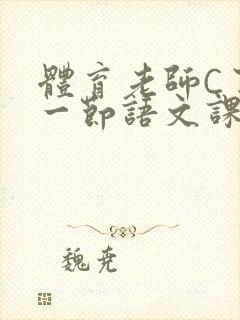 體育老師C
一節語文課
魏尭